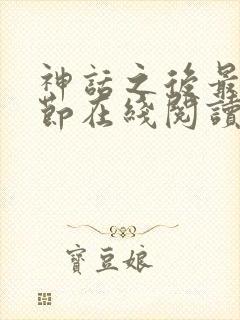 神話之後最
節在綫閱讀
寶豆娘